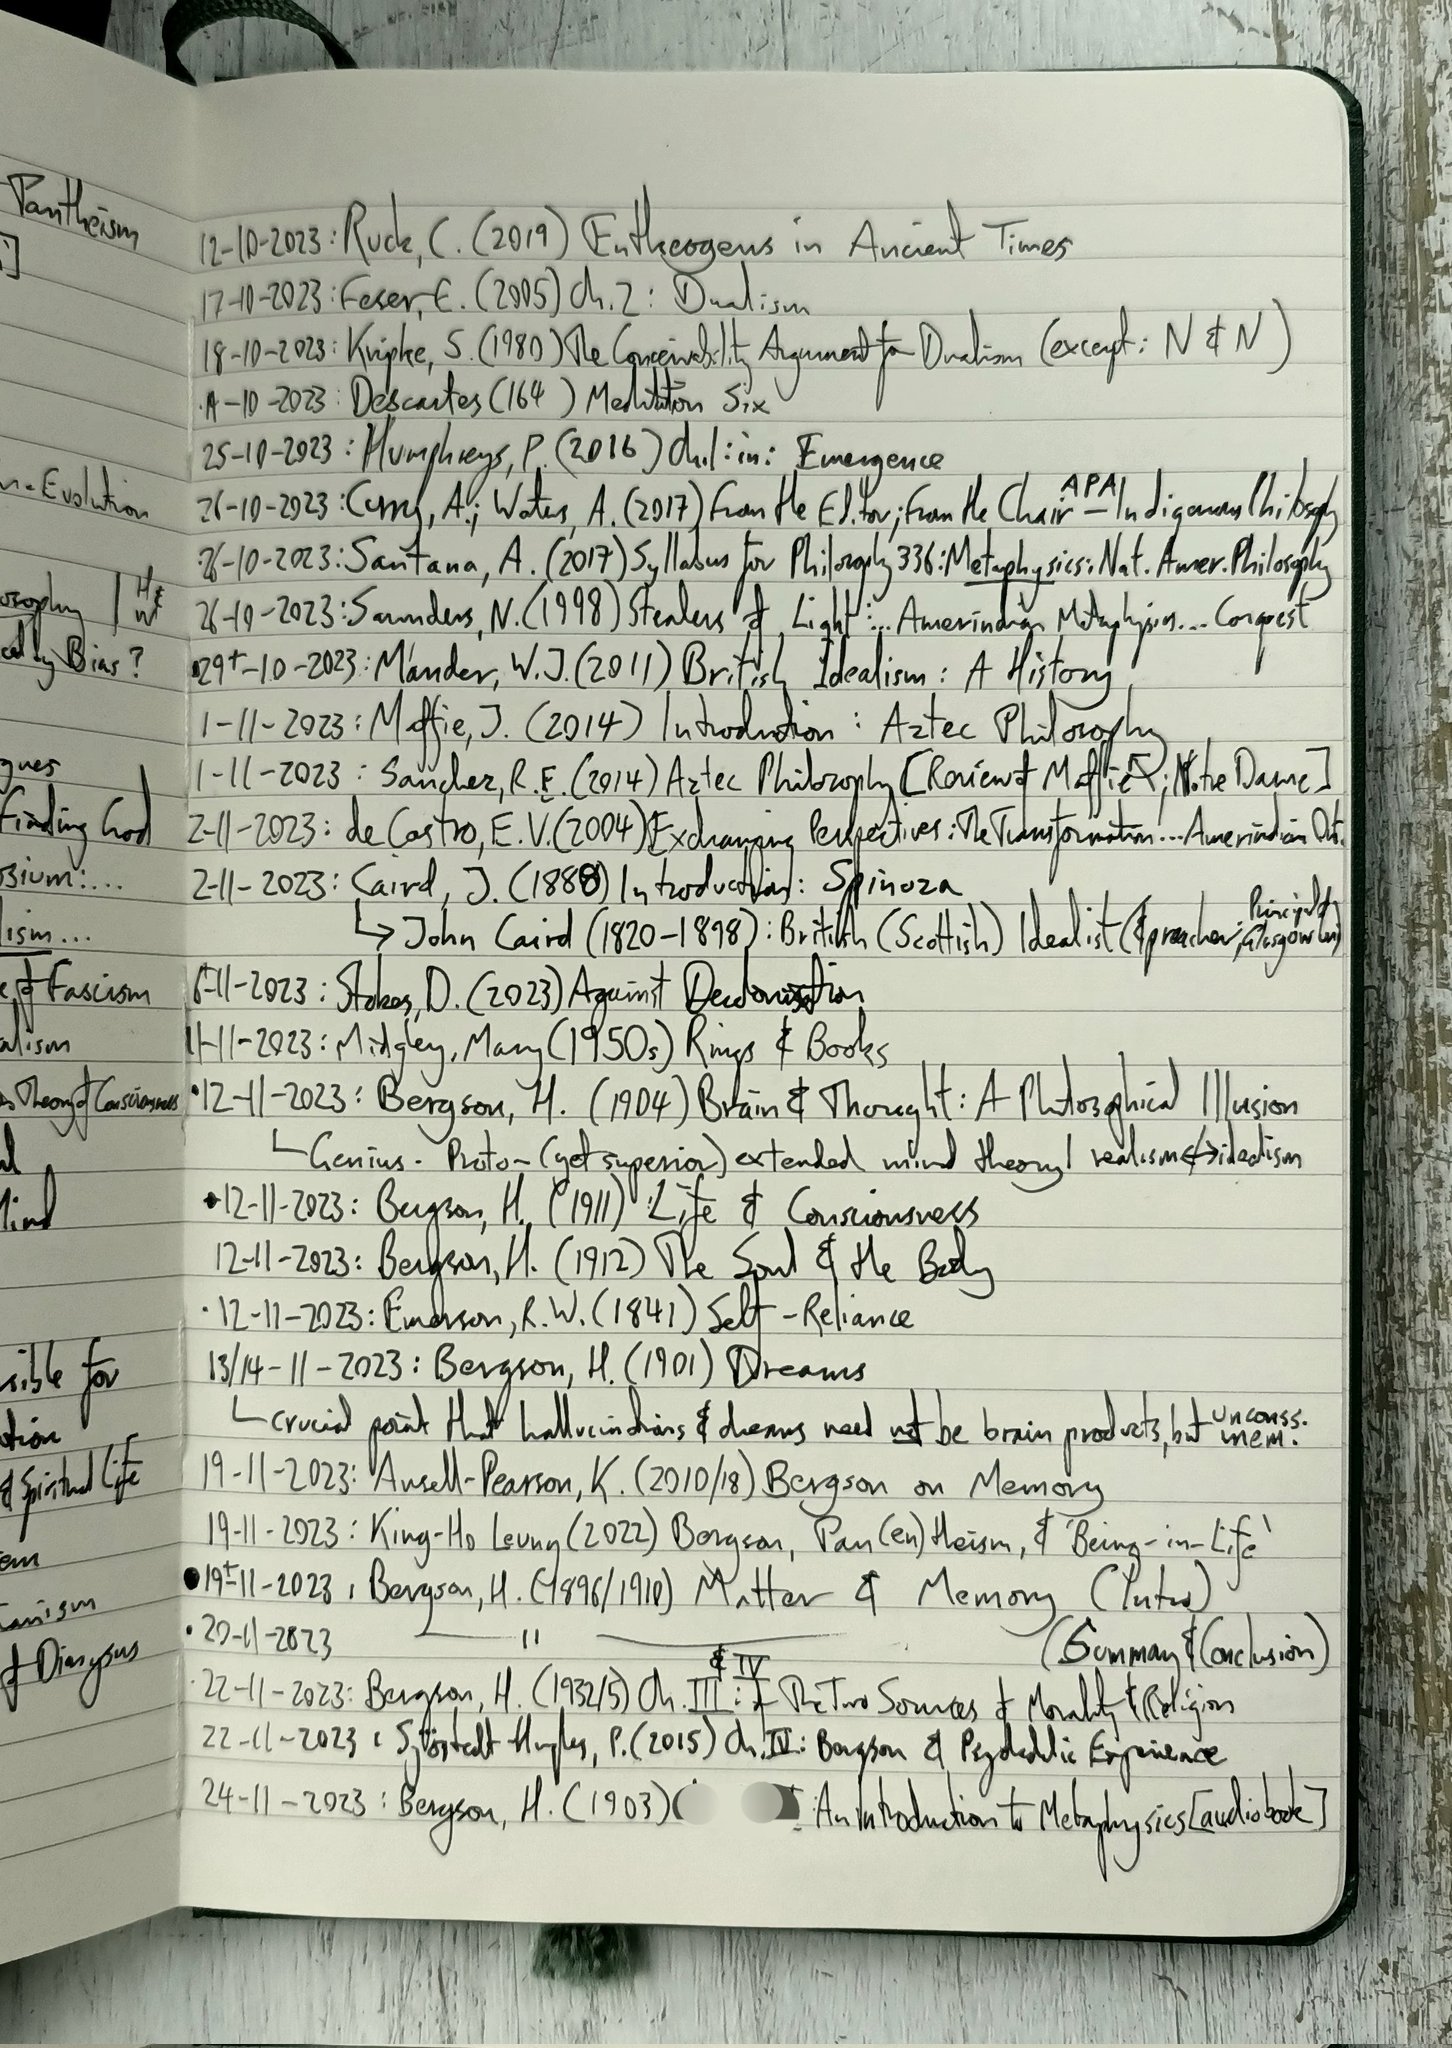 Pantheism
12-10-2023: Ruck, C. (2019) Entheogens in Ancient Times
17-10-2023: Feser, E. (2005) Ch. 2: Dualism
18-10-2023: Kripke, S. (1980) The Conceivability Argument for Dualism (excerpt: N & N)
-10-2023: Descartes (164 ) Meditation Six
25-10-2023: Humphreys, P. (2016) Ch.1: in: Emergence
n-Evolution
APA
26-10-2023: Curry, A.; Waters, A. (2017) From the Editor; From the Chair – Indigenous Philosophy
26-10-2023: Santana, A. (2017) Syllabus for Philosophy 336: Metaphysics: Nat. Amer. Philosophy
osophy
26-10-2023: Saunders, N. (1998) Stealers of Light:... Amerindian Metaphysics... Conquest
Bias?
29+-10-2023: Mander, W.J. (2011) British Idealism: A History
1-11-2023: Maffie, J. (2014) Introduction: Aztec Philosophy
gues
1-11-2023: Sanchez, R.E. (2014) Aztec Philosophy [Review of Maffie ; Notre Dame]
Finding God
2-11-2023: de Castro, E.V. (2004) Exchanging Perspectives: The Transformation... Amerindian Ont.
osium:...
2-11-2023: Caird, J. (1888) Introduction: Spinoza
lism...
↳ John Caird (1820-1898): British (Scottish) Idealist (& preacher; Principal of Glasgow Uni)
of Fascism
6-11-2023: Stokes, D. (2023) Against Decolonisation
alism
11-11-2023: Midgley, Mary (1950s) Rings & Books
Theory of Consciousness
12-11-2023: Bergson, H. (1904) Brain & Thought: A Philosophical Illusion
Genius. Proto-(yet superior) extended mind theory! realism↔idealism
Mind
12-11-2023: Bergson, H. (1911) Life & Consciousness
12-11-2023: Bergson, H. (1912) The Soul & the Body
12-11-2023: Emerson, R.W. (1841) Self-Reliance
sible for
13/14-11-2023: Bergson, H. (1901) Dreams
tion
crucial point that hallucinations & dreams need not be brain products, but unconss. mem.
& Spiritual Life
19-11-2023: Ansell-Pearson, K. (2010/18) Bergson on Memory
19-11-2023: King-Ho Leung (2022) Bergson, Pan(en)theism, & 'Being-in-Life'
19+-11-2023: Bergson, H. (1896/1910) Matter & Memory (Intro)
anism
20-11-2023 — " — (Summary & Conclusion)
of Dionysus
& IV
22-11-2023: Bergson, H. (1932/5) Ch. III: of The Two Sources of Morality & Religion
22-11-2023: Sjöstedt-Hughes, P. (2015) Ch. IV: Bergson & Psychedelic Experience
24-11-2023: Bergson, H. (1903) : An Introduction to Metaphysics [audiobook]